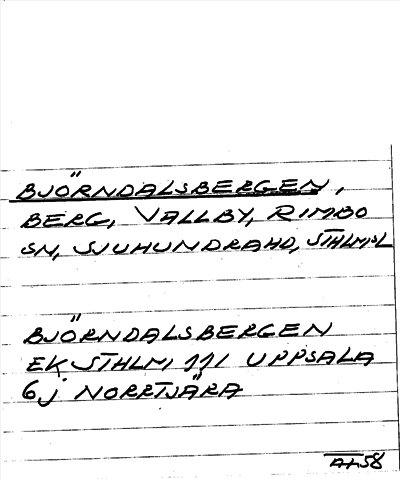 BJÖRNDALSBERGEN,
BERG, VALLBY, RIMBO
SN, SJUHUNDRAHD, STHLMSL
BJÖRNDALSBERGEN
EK STHLM 111 UPPSALA
6j NORRTJÄRA
AH58